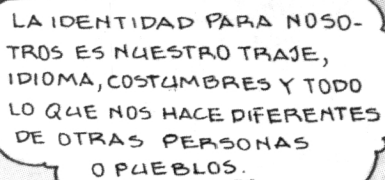 LA IDENTIDAD PARA NOSO-
TROS ES NUESTRO TRAJE,
IDIOMA, COSTUMBRES Y TODO
LO QUE NOS HACE DIFERENTES
DE OTRAS PERSONAS
O PUEBLOS.